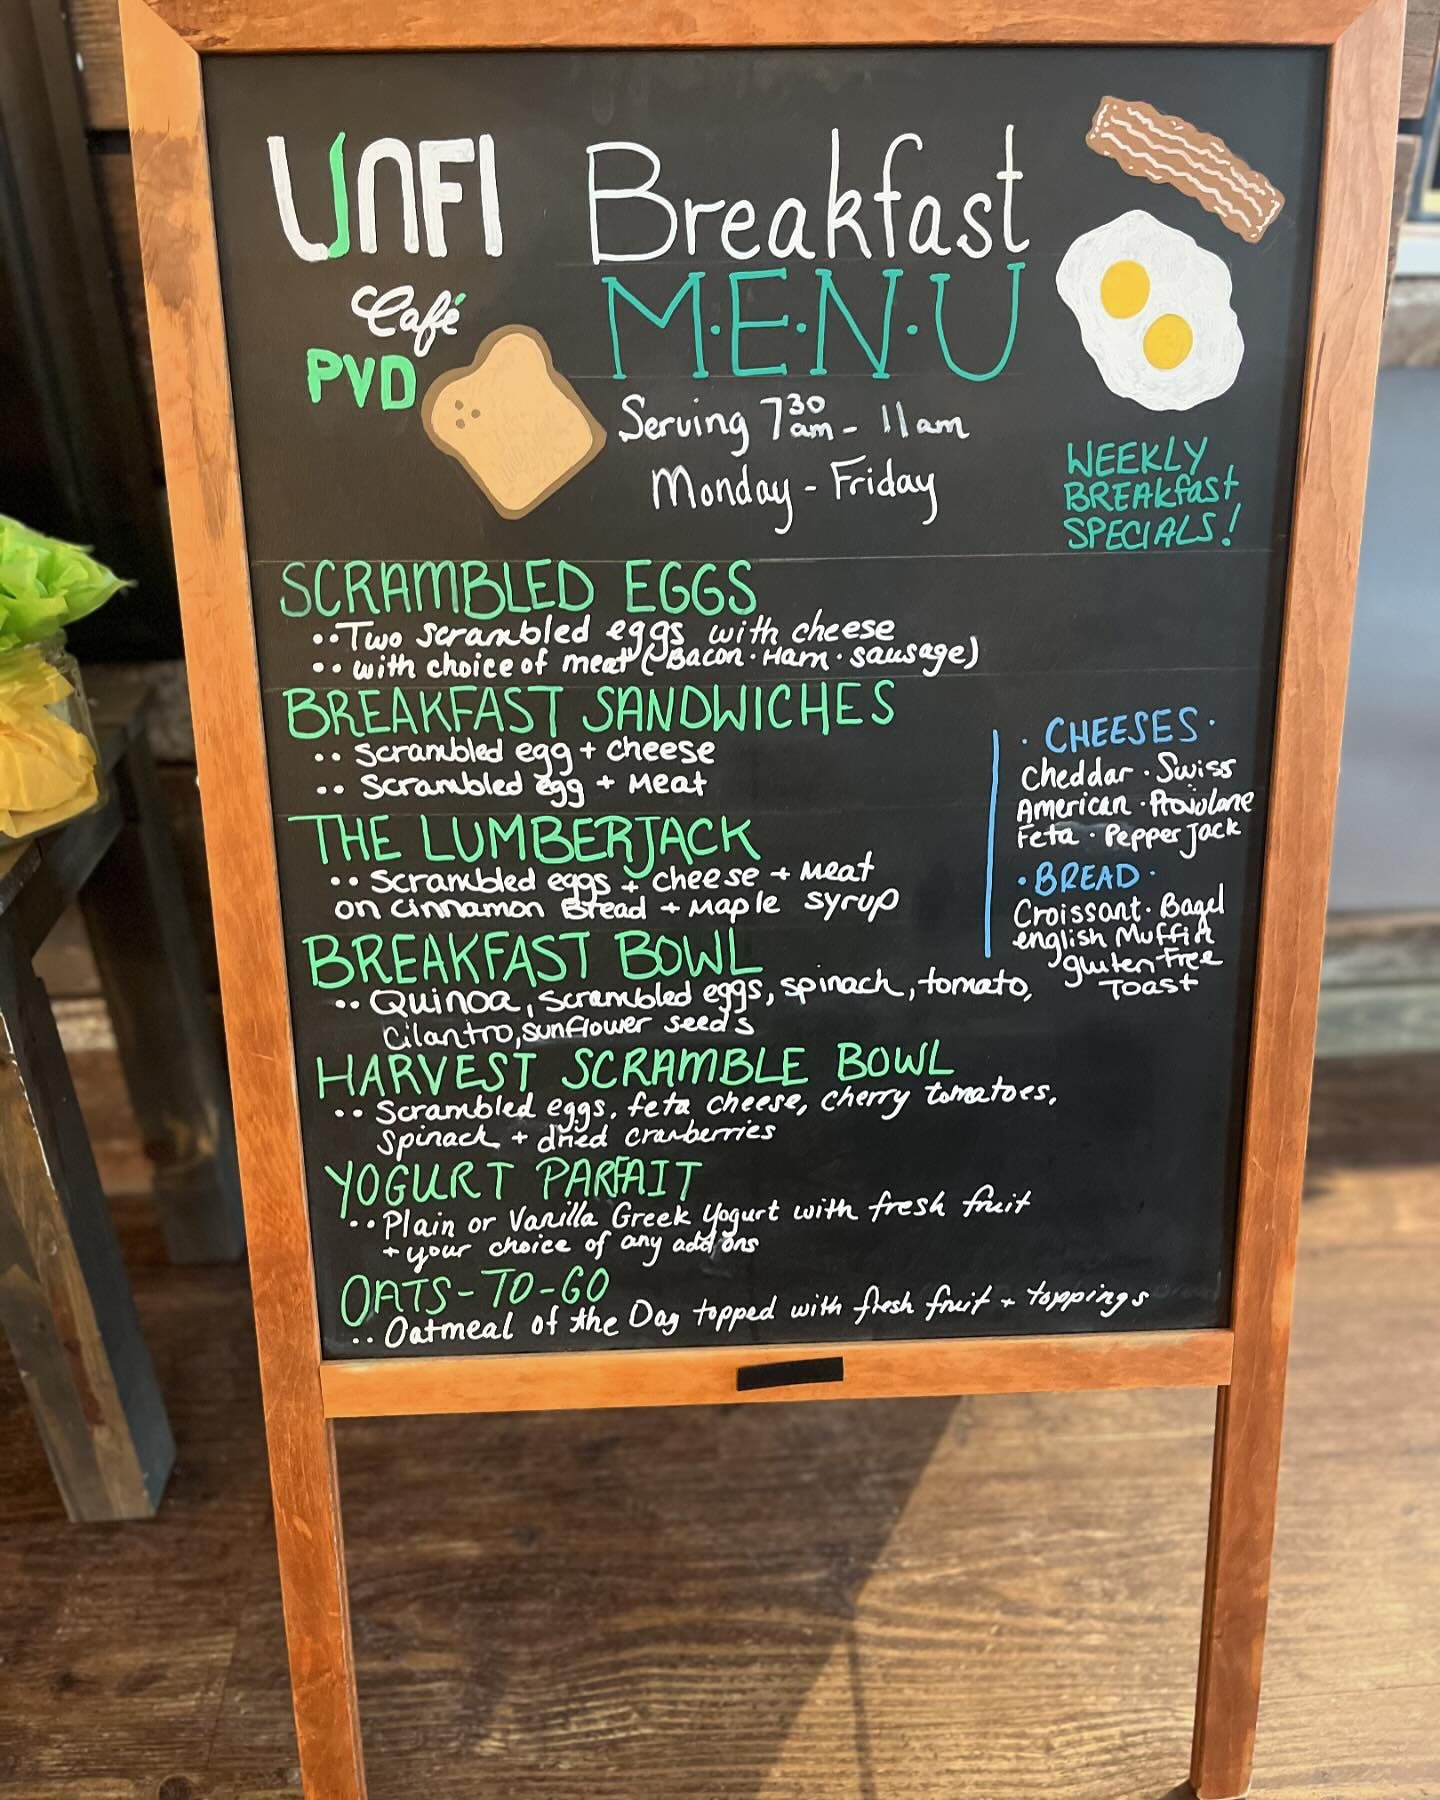 UNFI
Café
PVD
Breakfast
M·E·N·U
Serving 7 30 am - 11 am
Monday - Friday
WEEKLY
BREAKfast
SPECIALS!
SCRAMBLED EGGS
·· Two scrambled eggs with cheese
·· with choice of meat (Bacon · Ham · sausage)
BREAKFAST SANDWICHES
·· Scrambled egg + cheese
·· Scrambled egg + Meat
THE LUMBERJACK
·· Scrambled eggs + cheese + Meat
on cinnamon Bread + Maple syrup
BREAKFAST BOWL
·· Quinoa, scrambled eggs, spinach, tomato,
Cilantro, sunflower seeds
HARVEST SCRAMBLE BOWL
·· Scrambled eggs, feta cheese, cherry tomatoes,
spinach + dried cranberries
YOGURT PARFAIT
·· Plain or Vanilla Greek Yogurt with fresh fruit
+ your choice of any add ons
OATS-TO-GO
·· Oatmeal of the Day topped with fresh fruit + toppings
· CHEESES ·
Cheddar · Swiss
American · Provolone
Feta · Pepper Jack
· BREAD ·
Croissant · Bagel
english Muffin
gluten free
Toast